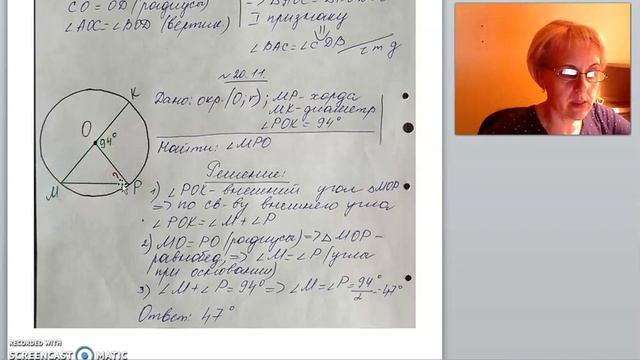 CO = OD (радиусы)
∠AOC = ∠BOD (вертик)
I признаку
∠BAC = ∠CDB
ч т д
№20.11.
K
O
94°
M
?
P
Дано: окр. (O; r); MP - хорда
MK - диаметр
∠POK = 94°
Найти: ∠MPO
Решение:
1) ∠POK - внешний угол ΔMOP
=> по св-ву внешнего угла
∠POK = ∠M + ∠P
2) MO = PO (радиусы) => ΔMOP -
равнобед, => ∠M = ∠P (углы
при основании)
3) ∠M + ∠P = 94° => ∠M = ∠P = 94°/2 = 47°
Ответ: 47°
RECORDED WITH
SCREENCAST MATIC